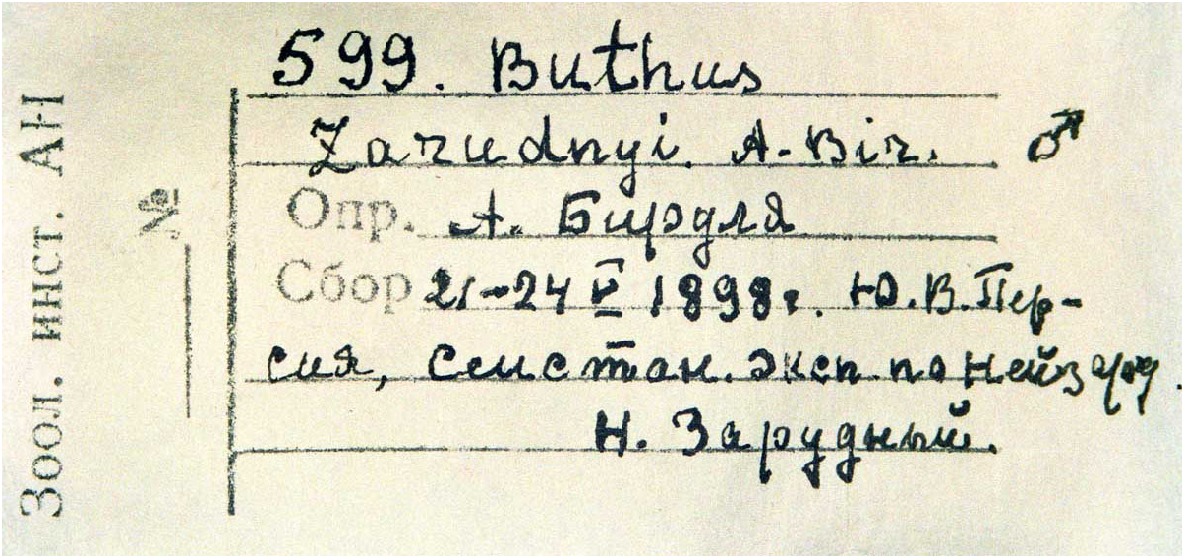 Зоол. инст. АН
№
599. Buthus
Zarudnyi. A-Bir. ♂
Опр. А. Бирэдля
Сбор 21-24 V 1898 г. Ю.В. Пер-
сия, Сеистан. Эксп по
Н. Зарудный.